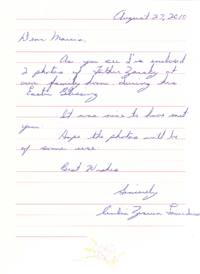 August 27, 2010
Dear Marcia,
As you see I've enclosed
2 photos of Father Zarsky at
our family home during his
Easter Blessing
It was nice to have met
you.
Hope the photos will be
of some use.
Best Wishes
Sincerely